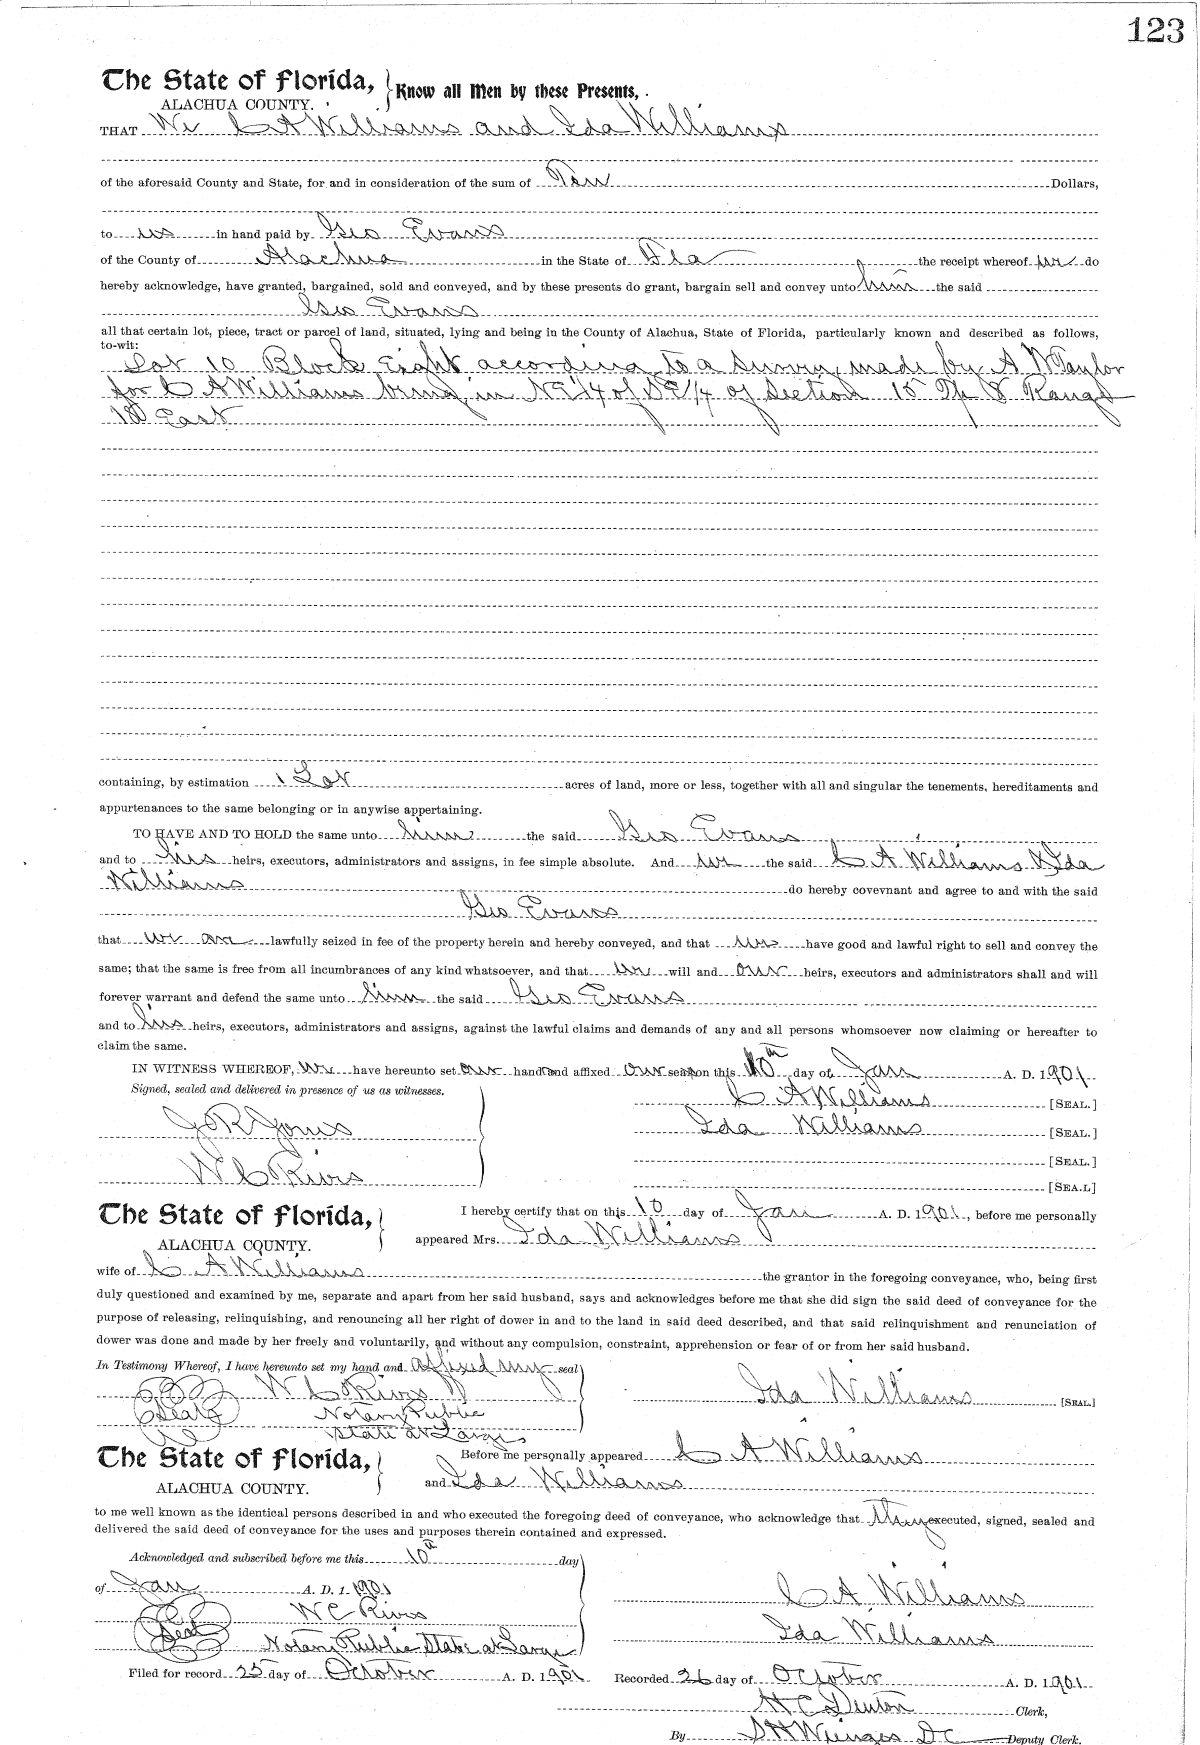 123
The State of Florida, Know all Men by these Presents,
ALACHUA COUNTY.
THAT We C A Williams and Ida Williams
of the aforesaid County and State, for and in consideration of the sum of Ten Dollars,
to us in hand paid by Geo Evans
of the County of Alachua in the State of Fla the receipt whereof we do
hereby acknowledge, have granted, bargained, sold and conveyed, and by these presents do grant, bargain sell and convey unto him the said
Geo Evans
all that certain lot, piece, tract or parcel of land, situated, lying and being in the County of Alachua, State of Florida, particularly known and described as follows,
to-wit:
Lot 10 Block Eight according to a Survey made by A W Taylor
for C A Williams being in NE 1/4 of SE 1/4 of Section 15 Tp 8 Range
18 East
containing, by estimation 1 Lot acres of land, more or less, together with all and singular the tenements, hereditaments and
appurtenances to the same belonging or in anywise appertaining.
TO HAVE AND TO HOLD the same unto him the said Geo Evans
and to his heirs, executors, administrators and assigns, in fee simple absolute. And we the said C A Williams & Ida
Williams do hereby covevnant and agree to and with the said
Geo Evans
that we are lawfully seized in fee of the property herein and hereby conveyed, and that we have good and lawful right to sell and convey the
same; that the same is free from all incumbrances of any kind whatsoever, and that we will and our heirs, executors and administrators shall and will
forever warrant and defend the same unto him the said Geo Evans
and to his heirs, executors, administrators and assigns, against the lawful claims and demands of any and all persons whomsoever now claiming or hereafter to
claim the same.
IN WITNESS WHEREOF, we have hereunto set our hand and affixed our seal on this 10th day of Jan A. D. 1901
Signed, sealed and delivered in presence of us as witnesses.
C A Williams [SEAL.]
J R Jones
Ida Williams [SEAL.]
[SEAL.]
W C Rivers
[SEA.L]
The State of Florida,
ALACHUA COUNTY.
I hereby certify that on this 10 day of Jan A. D. 1901, before me personally
appeared Mrs. Ida Williams
wife of C A Williams the grantor in the foregoing conveyance, who, being first
duly questioned and examined by me, separate and apart from her said husband, says and acknowledges before me that she did sign the said deed of conveyance for the
purpose of releasing, relinquishing, and renouncing all her right of dower in and to the land in said deed described, and that said relinquishment and renunciation of
dower was done and made by her freely and voluntarily, and without any compulsion, constraint, apprehension or fear of or from her said husband.
In Testimony Whereof, I have hereunto set my hand and affixed my seal
W C Rivers
Ida Williams [SEAL.]
Seal Notary Public
State at Large
The State of Florida,
ALACHUA COUNTY.
Before me personally appeared C A Williams
and Ida Williams
to me well known as the identical persons described in and who executed the foregoing deed of conveyance, who acknowledge that they executed, signed, sealed and
delivered the said deed of conveyance for the uses and purposes therein contained and expressed.
Acknowledged and subscribed before me this 10th day
of Jan A. D. 1 1901
C A Williams
W C Rivers
Seal Notary Public State at Large
Ida Williams
Filed for record 25 day of October A. D. 1901 Recorded 26 day of October A. D. 1901
H C Denton Clerk,
By S H Wienges D C Deputy Clerk.